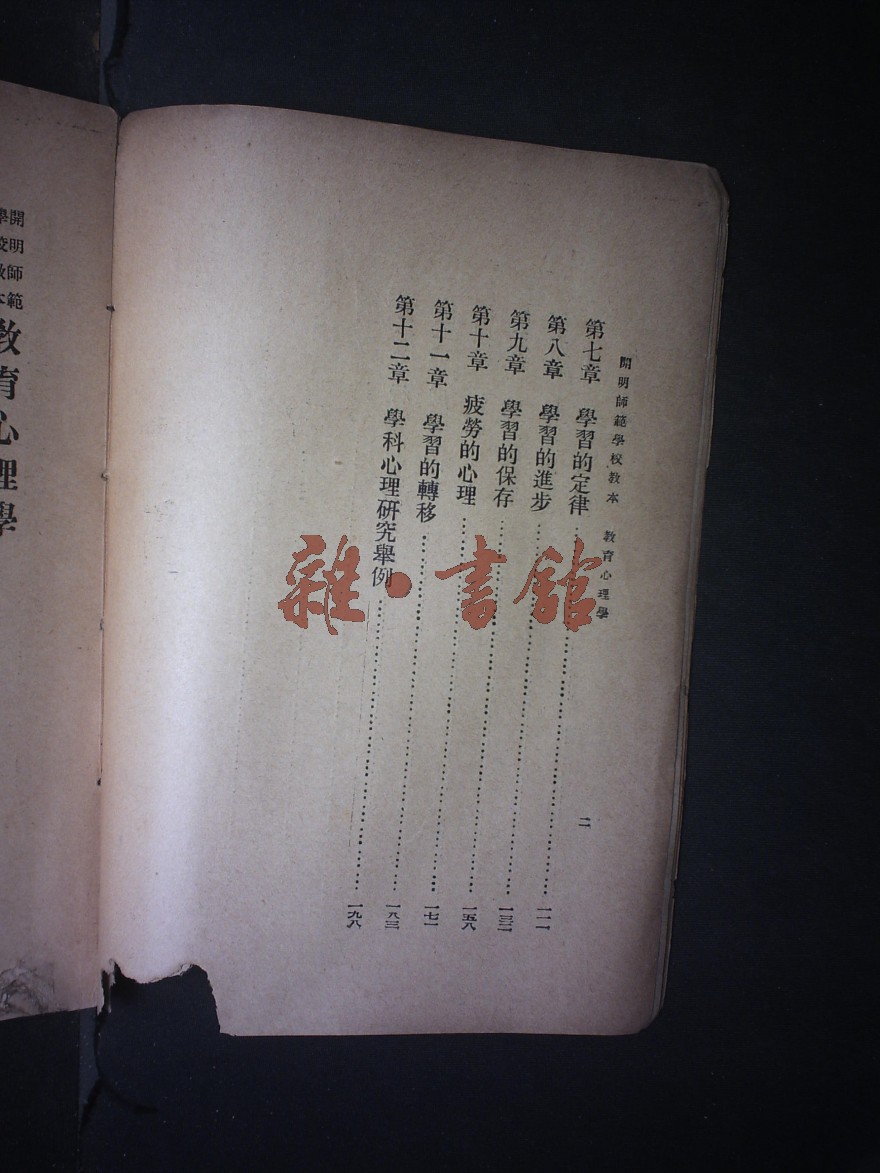 開明師範學校教本 教育心理學 二
第七章 學習的定律……一一一
第八章 學習的進步……一三二
第九章 學習的保存……一五八
第十章 疲勞的心理……一七一
第十一章 學習的轉移……一八三
第十二章 學科心理研究舉例……一九八
開明師範
學校教本
教育心理學
雜·書館